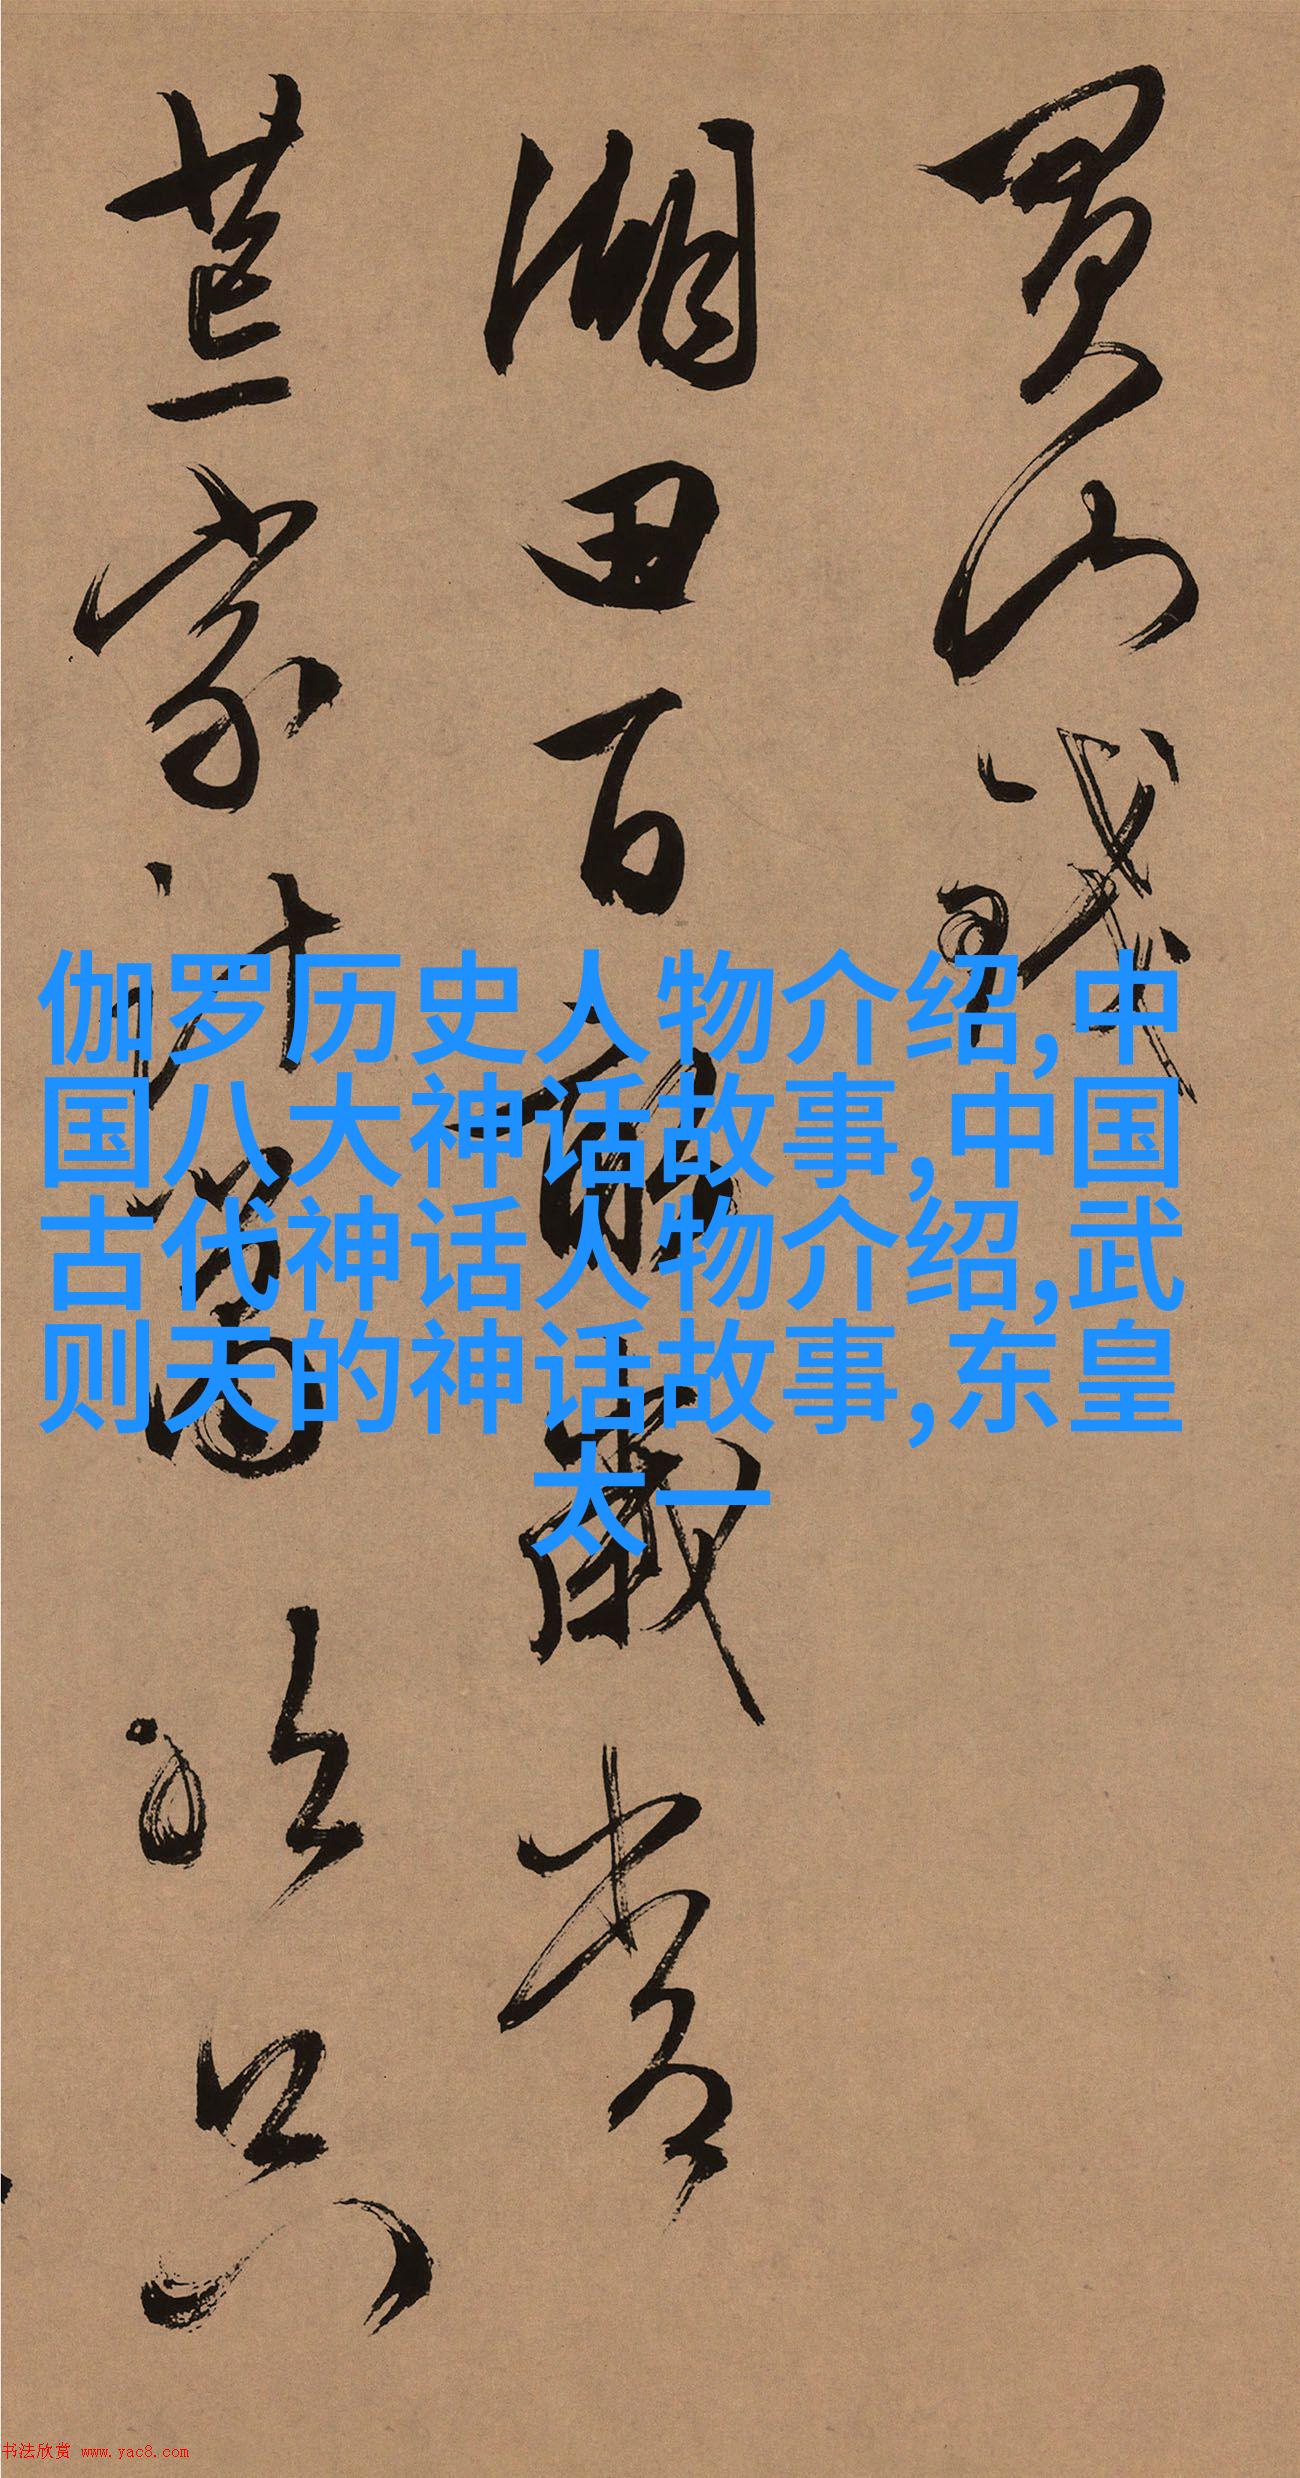 買山錢
湖田百畝歲常
荒一家計留
只
伽罗历史人物介绍,中
国八大神话故事,中国
古代神话人物介绍,武
则天的神话故事,东皇
太一
书法欣赏 www.yac8.com